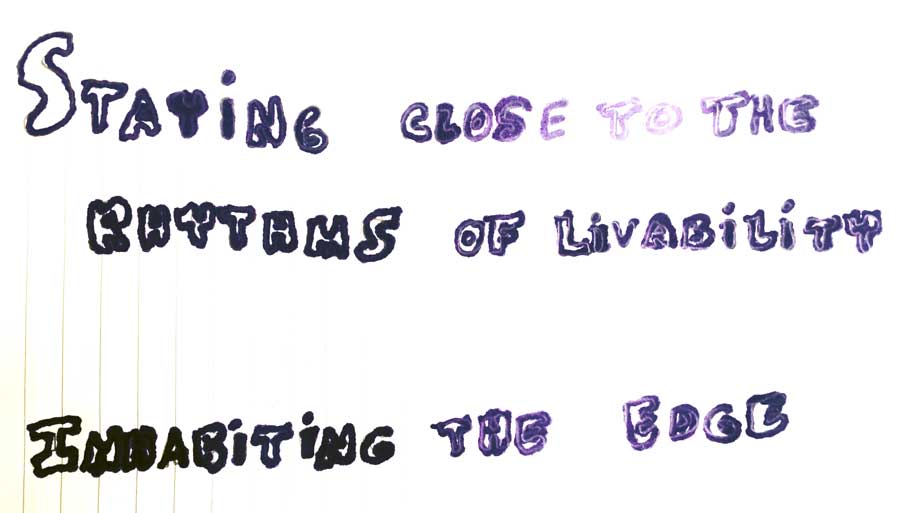 STAYiNG CLOSE TO THE
RHYTHMS OF LiVABiLiTY
INHABiTiNG THE EDGE